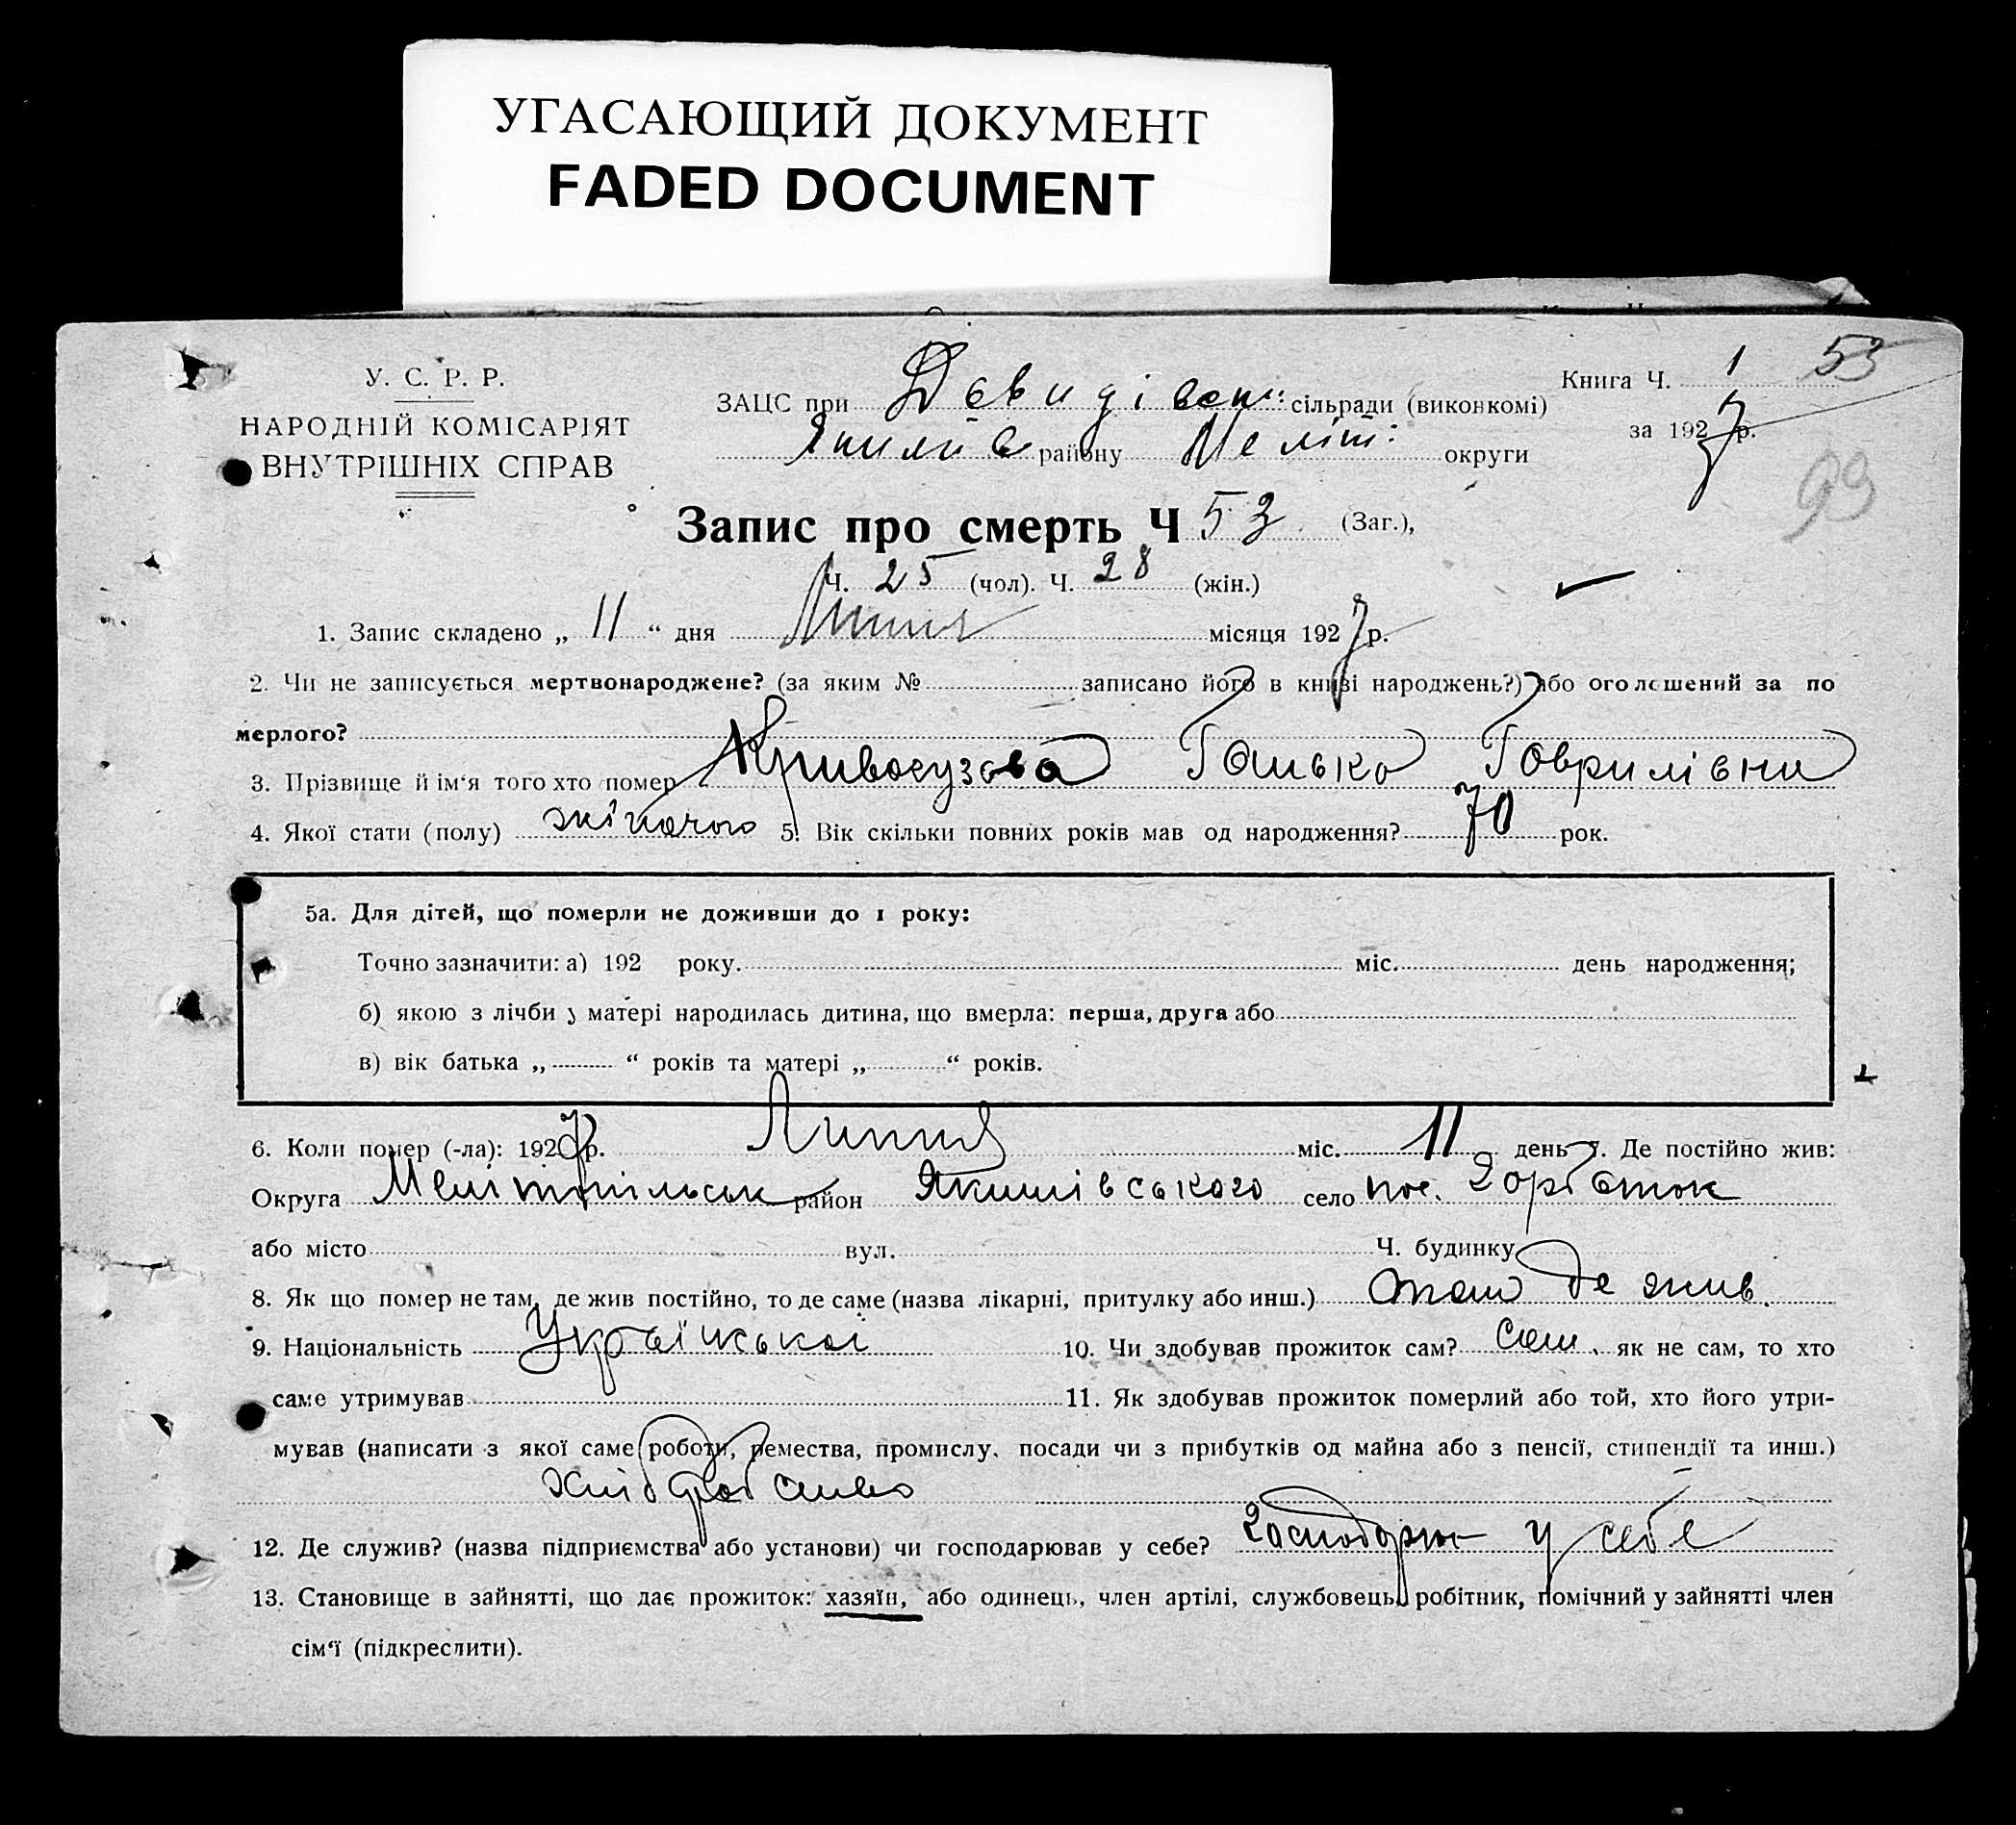 УГАСАЮЩИЙ ДОКУМЕНТ
FADED DOCUMENT
У. С. Р. Р.
НАРОДНІЙ КОМІСАРІЯТ
ВНУТРІШНІХ СПРАВ
Книга Ч. 1 53
ЗАЦС при Давидівськ: сільради (виконкомі)
за 1927 р.
Якимів району Меліт: округи
99
Запис про смерть Ч 53 (Заг.),
Ч. 25 (чол). Ч. 28 (жін.)
1. Запис складено „ 11 “ дня Липня місяця 1927 р.
2. Чи не записується мертвонароджене? (за яким № записано його в книзі народжень?) або оголошений за по
мерлого?
3. Прізвище й ім'я того хто помер Ганька Гаврилівни
4. Якої стати (полу) жіночого 5. Вік скільки повних років мав од народження? 70 рок.
5а. Для дітей, що померли не доживши до 1 року:
Точно зазначити: а) 192 року. міс. день народження;
б) якою з лічби у матері народилась дитина, що вмерла: перша, друга або
в) вік батька „ “ років та матері „ “ років.
6. Коли помер (-ла): 1927 р. Липня міс. 11 день 7. Де постійно жив:
Округа Мелітопільськ район Якимівського село пос. Горбаток
або місто вул. Ч. будинку
8. Як що помер не там, де жив постійно, то де саме (назва лікарні, притулку або инш.) там де жив.
9. Національність Української 10. Чи здобував прожиток сам? Сам, як не сам, то хто
саме утримував 11. Як здобував прожиток померлий або той, хто його утри-
мував (написати з якої саме роботи, ремества, промислу, посади чи з прибутків од майна або з пенсії, стипендії та инш.)
12. Де служив? (назва підприємства або установи) чи господарював у себе? у себе
13. Становище в зайнятті, що дає прожиток: хазяїн, або одинець, член артілі, службовець, робітник, помічний у зайнятті член
сім'ї (підкреслити).